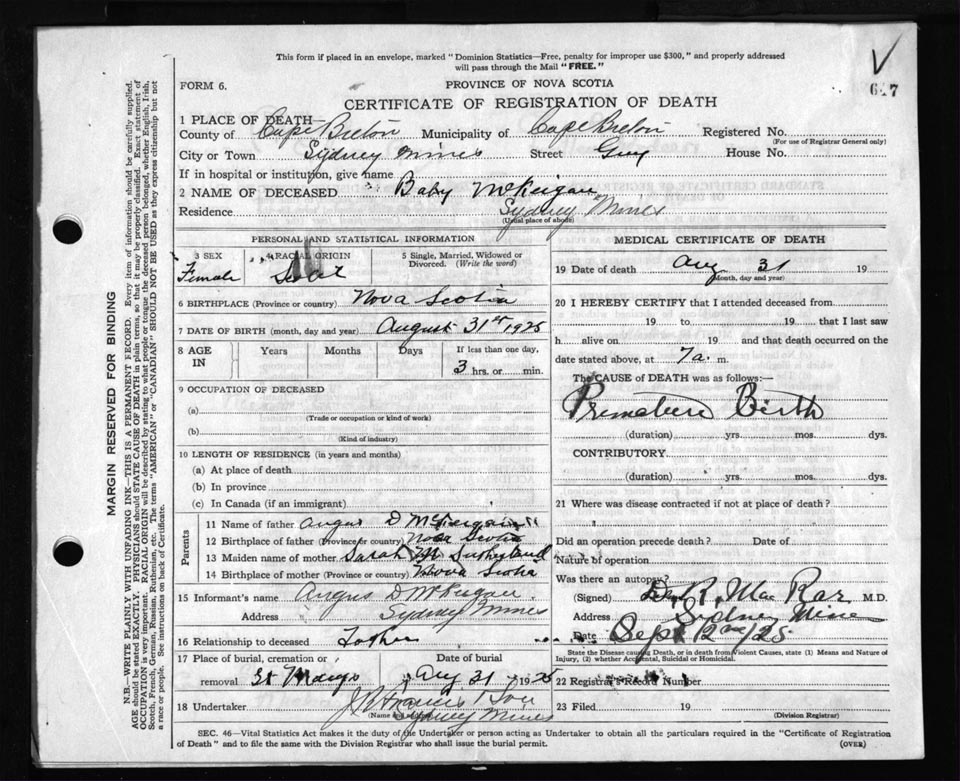 This form if placed in an envelope, marked "Dominion Statistics—Free, penalty for improper use $300," and properly addressed
will pass through the Mail "FREE."
FORM 6.
PROVINCE OF NOVA SCOTIA
CERTIFICATE OF REGISTRATION OF DEATH
627
1 PLACE OF DEATH—
County of Cape Breton Municipality of Cape Breton Registered No.
(For use of Registrar General only)
City or Town Sydney Mines Street Guy House No.
If in hospital or institution, give name
2 NAME OF DECEASED Baby McKeigan
Residence Sydney Mines
(Usual place of abode)
PERSONAL AND STATISTICAL INFORMATION
3 SEX Female
4 RACIAL ORIGIN Scot
5 Single, Married, Widowed or Divorced. (Write the word)
6 BIRTHPLACE (Province or country) Nova Scotia
7 DATE OF BIRTH (month, day and year) August 31st 1925
8 AGE IN Years Months Days If less than one day, 3 hrs. or min.
9 OCCUPATION OF DECEASED
(a)
(Trade or occupation or kind of work)
(b)
(Kind of industry)
10 LENGTH OF RESIDENCE (in years and months)
(a) At place of death
(b) In province
(c) In Canada (if an immigrant)
Parents
11 Name of father Angus D McKeigan
12 Birthplace of father (Province or country) Nova Scotia
13 Maiden name of mother Sarah M Sutherland
14 Birthplace of mother (Province or country) Nova Scotia
15 Informant's name Angus D McKeigan
Address Sydney Mines
16 Relationship to deceased Father
17 Place of burial, cremation or removal Date of burial Aug 31 1925
18 Undertaker
(Name and address) Sydney Mines
MEDICAL CERTIFICATE OF DEATH
19 Date of death Aug 31 19
(Month, day and year)
20 I HEREBY CERTIFY that I attended deceased from
19 to 19 that I last saw
h alive on 19 and that death occurred on the
date stated above, at 7 a. m.
The CAUSE of DEATH was as follows:—
Premature Birth
(duration) yrs. mos. dys.
CONTRIBUTORY
(duration) yrs. mos. dys.
21 Where was disease contracted if not at place of death?
Did an operation precede death? Date of
Nature of operation
Was there an autopsy?
(Signed) M.D.
Address Sydney Mines
Date Sept 2nd/25
State the Disease causing Death, or in death from Violent Causes, state (1) Means and Nature of
Injury, (2) whether Accidental, Suicidal or Homicidal.
22 Registrar's Record Number
23 Filed 19
(Division Registrar)
SEC. 46—Vital Statistics Act makes it the duty of the Undertaker or person acting as Undertaker to obtain all the particulars required in the "Certificate of Registration
of Death" and to file the same with the Division Registrar who shall issue the burial permit. (OVER)
MARGIN RESERVED FOR BINDING
N.B.—WRITE PLAINLY WITH UNFADING INK—THIS IS A PERMANENT RECORD. Every item of information should be carefully supplied.
AGE should be stated EXACTLY. PHYSICIANS should STATE CAUSE OF DEATH in plain terms, so that it may be properly classified. Exact statement of
OCCUPATION is very important. RACIAL ORIGIN will be described by stating to what people or tongue the deceased person belonged, whether English, Irish,
Scotch, French, German, Russian, Ruthenian, etc. The terms "AMERICAN" or "CANADIAN" SHOULD NOT BE USED as they express citizenship but not
a race or people. See instructions on back of Certificate.